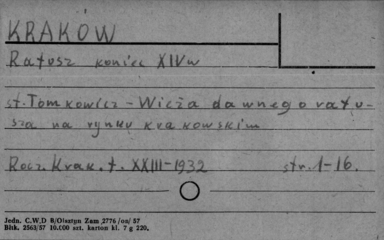 KRAKÓW
Ratusz koniec XIVw
St. Tomkowicz - Wieża dawnego ratu-
sza na rynku krakowskim
Rocz. Krak. t. XXIII-1932 str. 1-16.
Jedn. C.W.D B/Olsztyn Zam 2776/on/57
Blsk. 2563/57 10.000 szt. karton kl. 7 g 220.